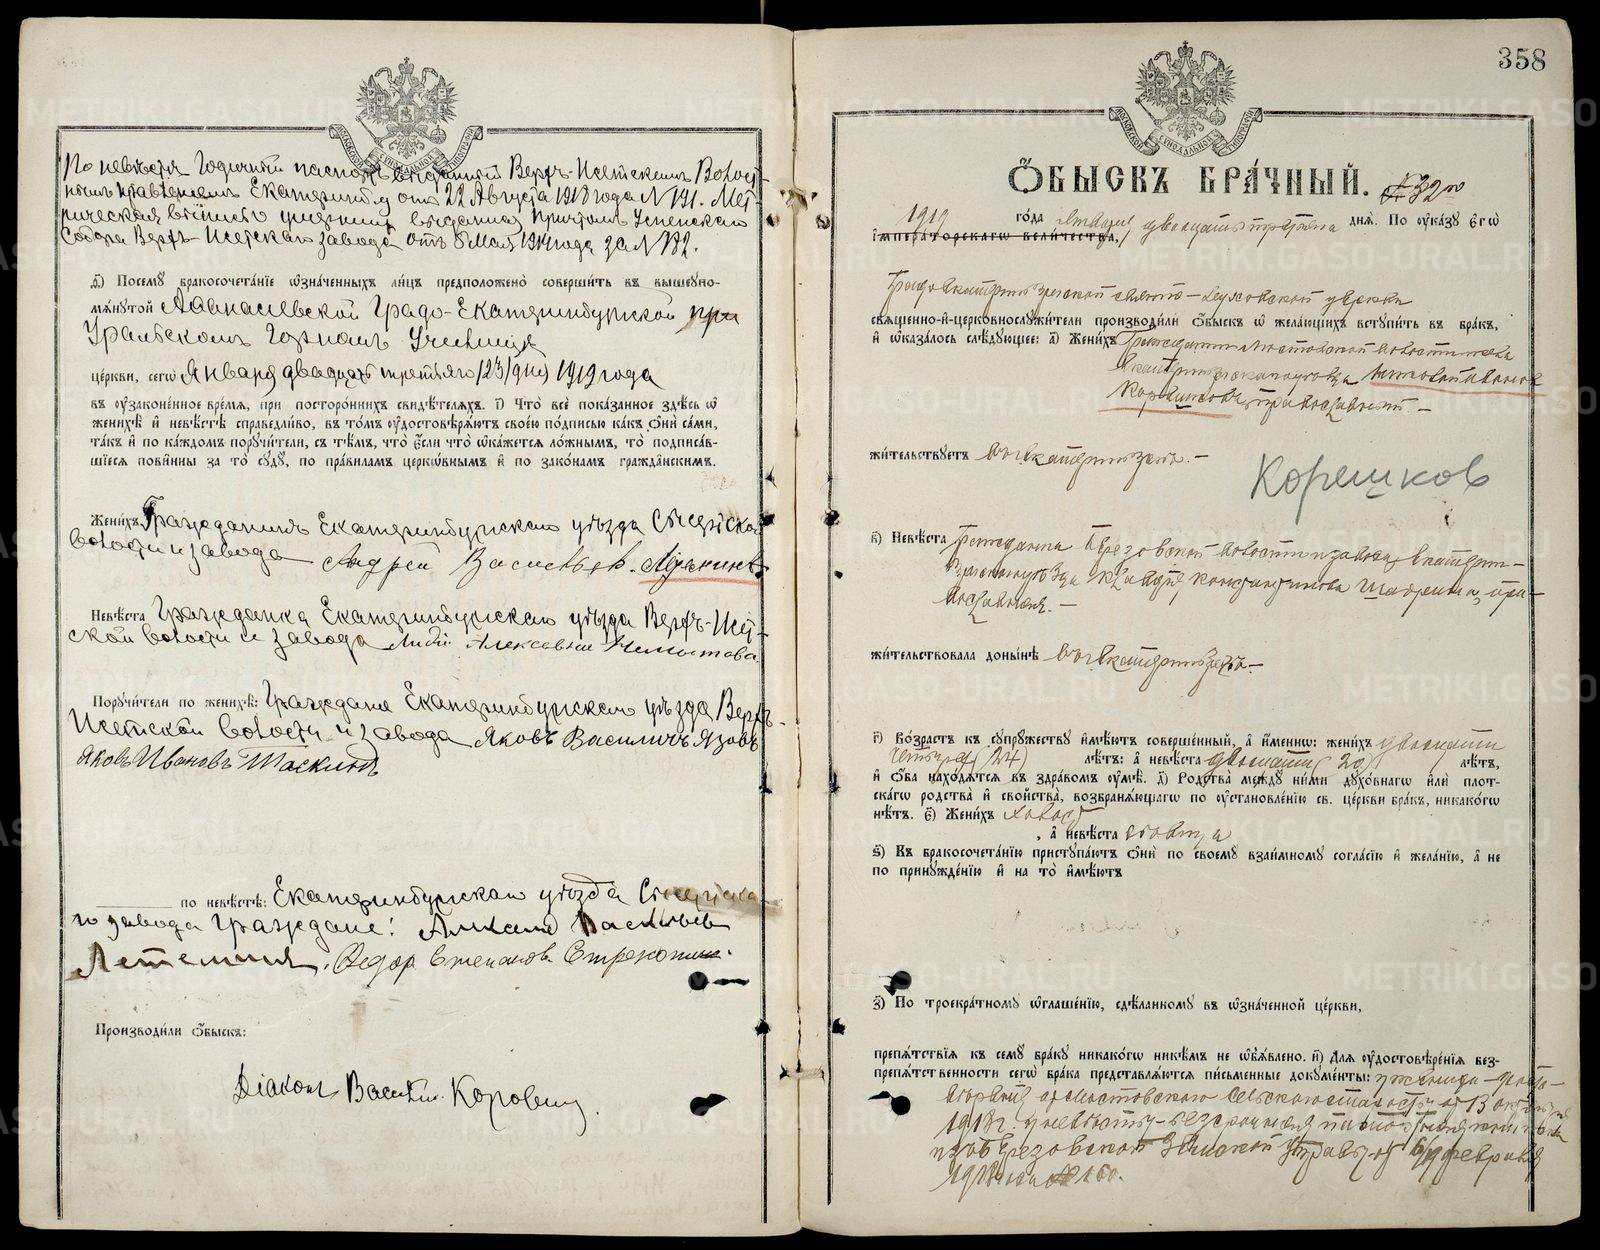 По невѣстѣ Годичный паспортъ выданный Верхъ-Исетскимъ Волост-
нымъ Правленіемъ Екатеринб. у. отъ 22 Августа 1918 года № 191. Мет-
рическая выпись о рожденіи выдана Причтомъ Успенскаго
Собора Верхъ-Исетскаго завода отъ 8 Мая 1914 года за № 132.
д҃) Посему бракосочетанїе ѡзначенныхъ лицъ предположено совершить въ вышеупо-
мянутой Аѳанасіевской Градо-Екатеринбургской при
Уральскомъ Горномъ Училищѣ
церкви, сегѡ Января двадцать третьяго (23) дня 1919 года
въ узаконенное время, при постороннихъ свидѣтеляхъ. і҃) Что все показанное здѣсь ѡ
женихѣ и невѣстѣ справедливо, въ томъ удостовѣряютъ своею подписью какъ они сами,
такъ и по каждомъ поручители, съ тѣмъ, что если что ѡкажется ложнымъ, то подписав-
шїеся повинны за то суду, по правиламъ церкѡвнымъ и по законамъ гражданскимъ.
Женихъ Гражданинъ Екатеринбургскаго уѣзда Сысертской
волости и завода Андрей Васильевъ
Невѣста Гражданка Екатеринбургскаго уѣзда Верхъ-Исет-
ской волости и завода Алексѣевна
Поручители по женихѣ: Граждане Екатеринбургскаго уѣзда Верхъ-
Исетской волости и завода Яковъ Василичъ Язовъ
Яковъ Ивановъ Таскинъ
по невѣстѣ: Екатеринбургскаго уѣзда Сысертска-
го завода Граждане: Васильевъ
Летемина, Федоръ Степановъ
Производили ѡбыскъ:
Діаконъ Василій Коровинъ.
358
МОСКОВСКОЙ СѴНОДАЛЬНОЙ ТИПОГРАФІИ
МОСКОВСКОЙ СѴНОДАЛЬНОЙ ТИПОГРАФІИ
ѠБЫСКЪ БРАЧНЫЙ. № 32
1919 года Января двадцать третьяго дня. По указу Егѡ
Императорскагѡ Величества,
Градо-Екатеринбургской Свято-Духовской церкви
священно-и-церковнослужители производили ѡбыскъ ѡ желающихъ вступить въ бракъ,
и ѡказалось слѣдующее: а҃) Женихъ Гражданинъ волости
Екатеринбургскаго уѣзда
православный –
жительствуетъ въ г. Екатеринбургѣ. –
Корешков
в҃) Невѣста Гражданка Березовской волости и завода Екатерин-
бургскаго уѣзда Клавдія Константинова Шадрина, пра-
вославная. –
жительствовала донынѣ въ г. Екатеринбургѣ. –
г҃) Возрастъ къ супружеству имѣютъ совершенный, а именно: женихъ двадцати
четырехъ (24) лѣтъ: а невѣста двадцати (20) лѣтъ,
и ѡба находятся въ здравомъ умѣ. д҃) Родства между ними духовнагѡ или плот-
скагѡ родства и свойства, возбраняющагѡ по установленїю св. церкви бракъ, никакогѡ
нѣтъ. є҃) Женихъ холостъ
, а невѣста дѣвица
ѕ҃) Къ бракосочетанїю приступаютъ они по своему взаимному согласїю и желанїю, а не
по принужденїю и на то имѣютъ
з҃) По троекратному ѡглашенїю, сдѣланному въ ѡзначенной церкви,
препятствїя къ сему браку никакогѡ никѣмъ не объявлено. и҃) Для удостовѣренїя без-
препятственности сегѡ брака представляются письменные документы: у жениха –
отъ Сельскаго отъ 13
1918 г. у невѣсты – безсрочная паспортная книжка
изъ Березовской Земской Управы отъ 6/19 февраля
1918 года № 160.
METRIKI.GASO-URAL.RU